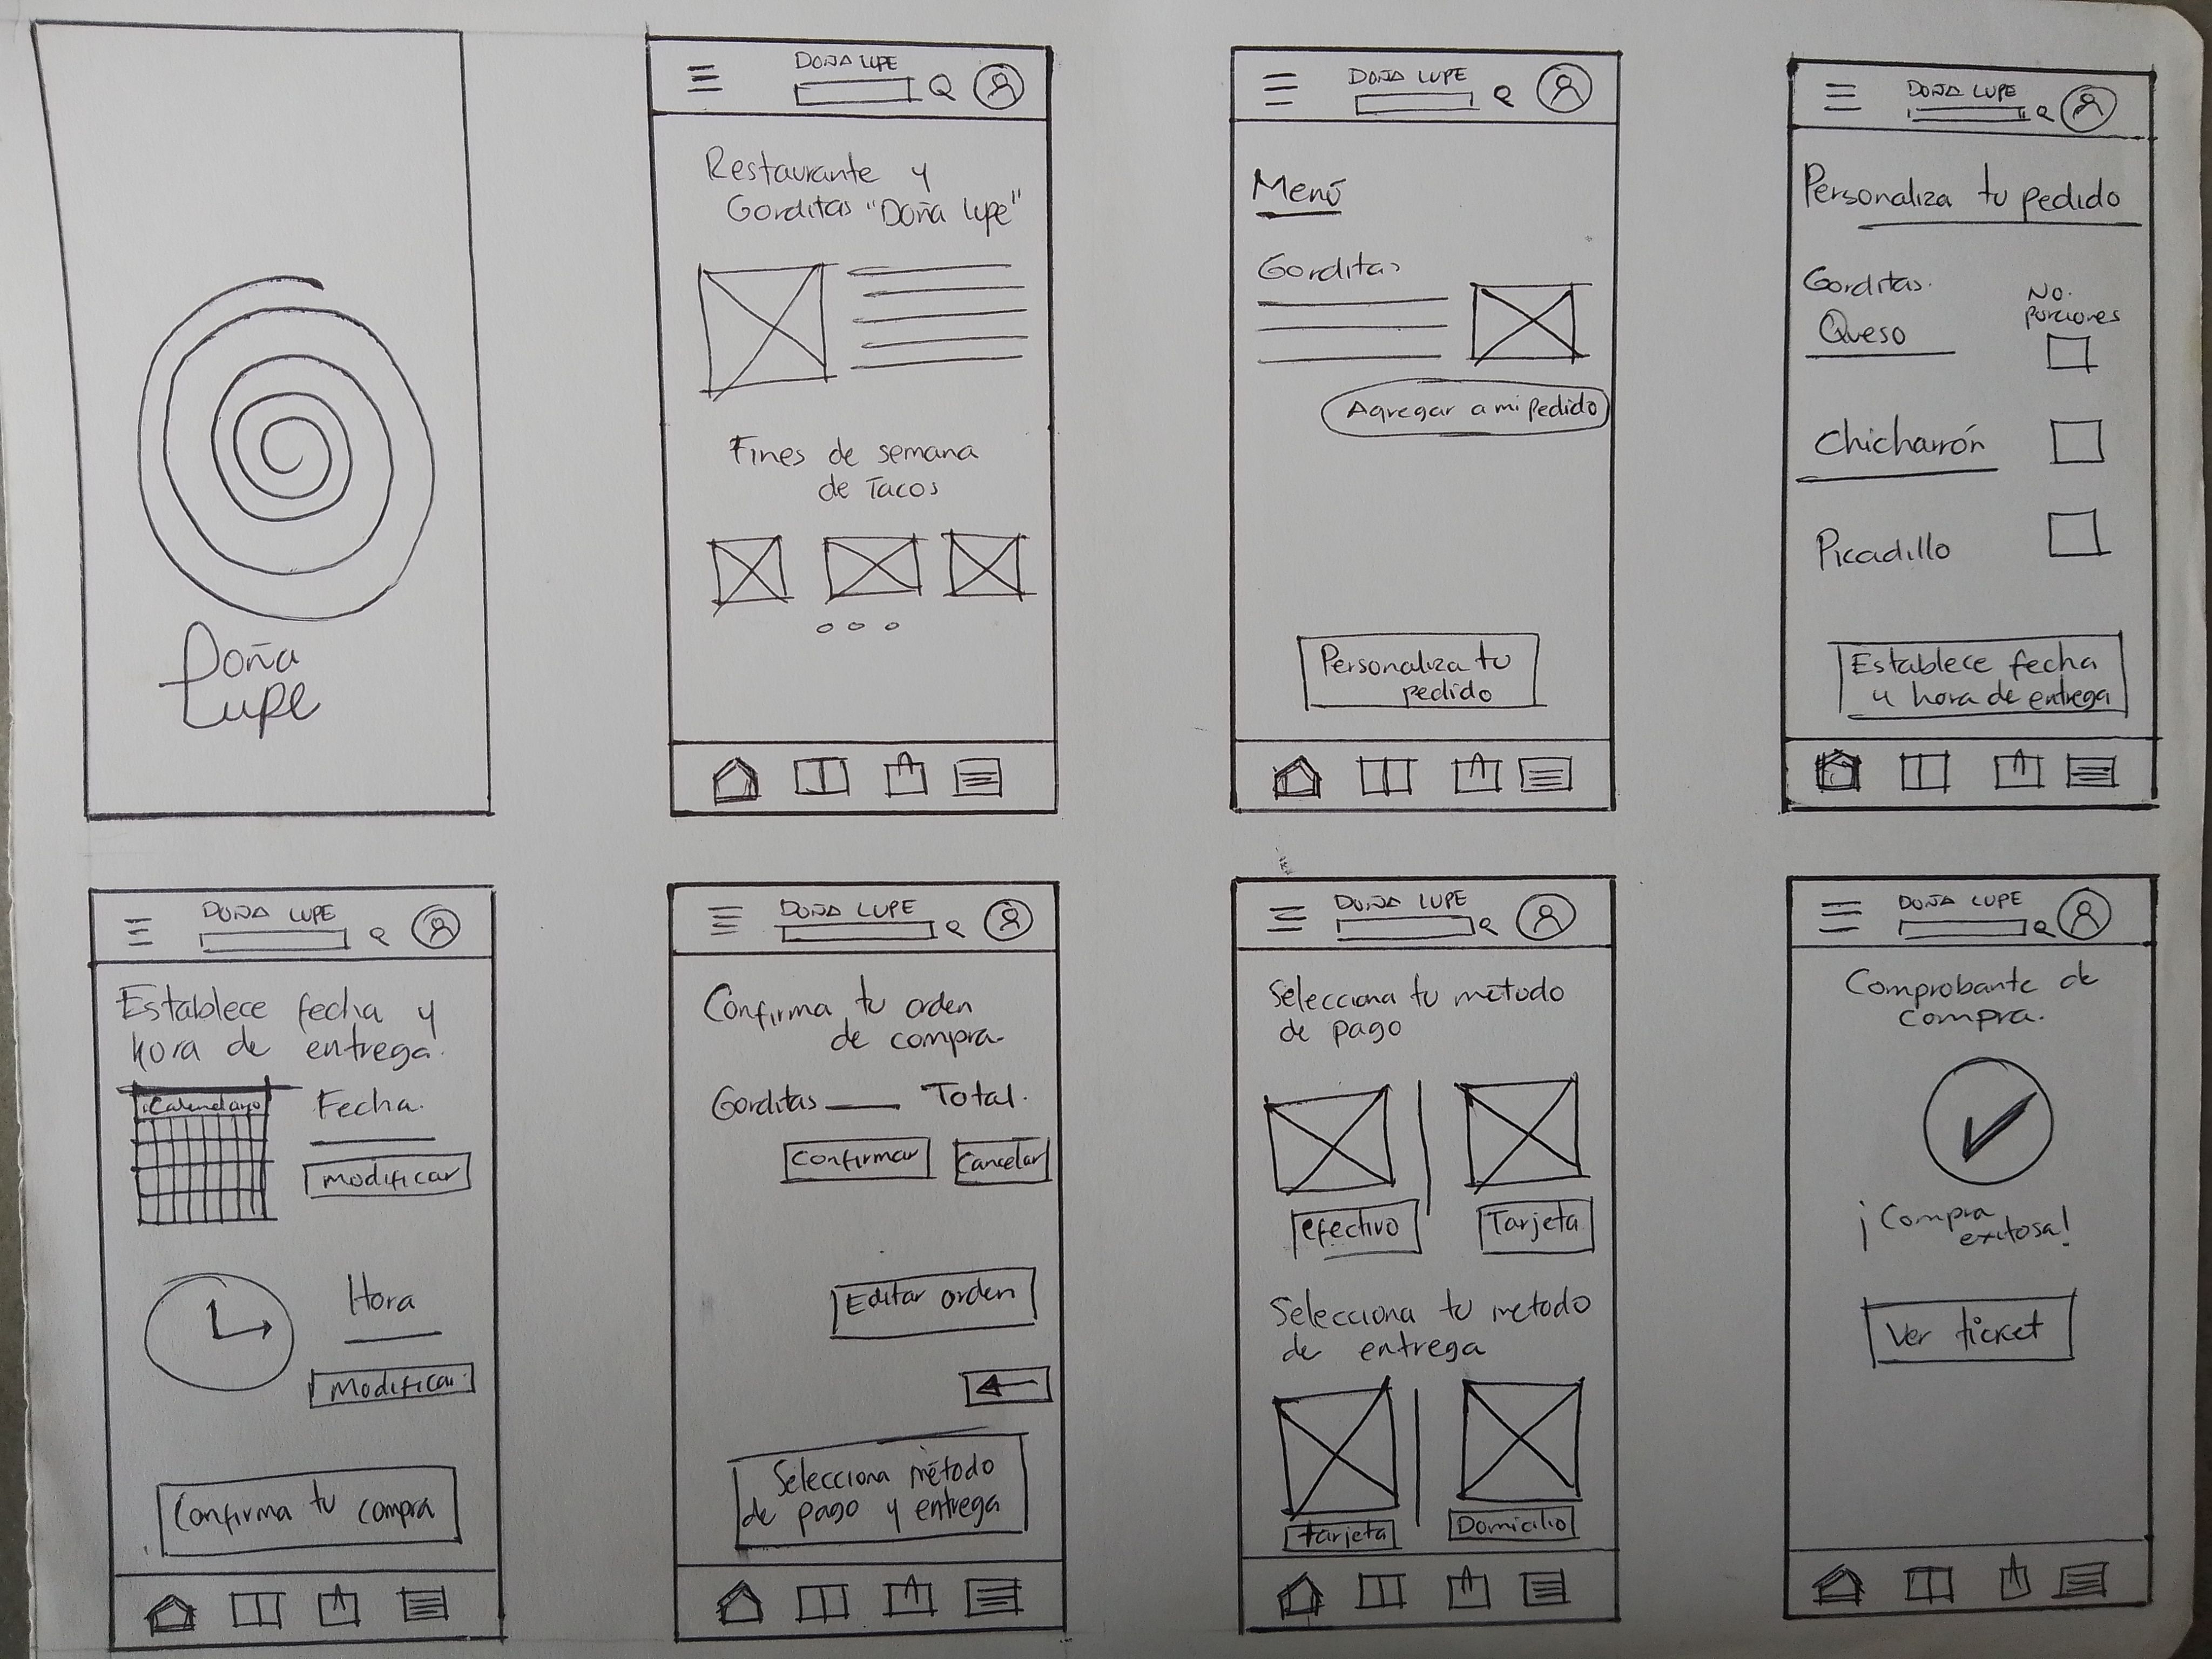 Doña
Lupe
DOÑA LUPE
Restaurante y
Gorditas "Doña lupe"
Fines de semana
de Tacos
DOÑA LUPE
Menú
Gorditas
Agregar a mi pedido
Personaliza tu
pedido
DOÑA LUPE
Personaliza tu pedido
Gorditas.
No.
porciones
Queso
Chicharrón
Picadillo
Establece fecha
y hora de entrega
DOÑA LUPE
Establece fecha y
hora de entrega.
Calendario
Fecha.
Modificar
Hora
Modificar
Confirma tu compra
DOÑA LUPE
Confirma tu orden
de compra.
Gorditas Total.
Confirmar Cancelar
Editar orden
Selecciona método
de pago y entrega
DOÑA LUPE
Selecciona tu metodo
de pago
efectivo Tarjeta
Selecciona tu metodo
de entrega
tarjeta Domicilio
DOÑA LUPE
Comprobante de
compra.
¡Compra
exitosa!
Ver ticket